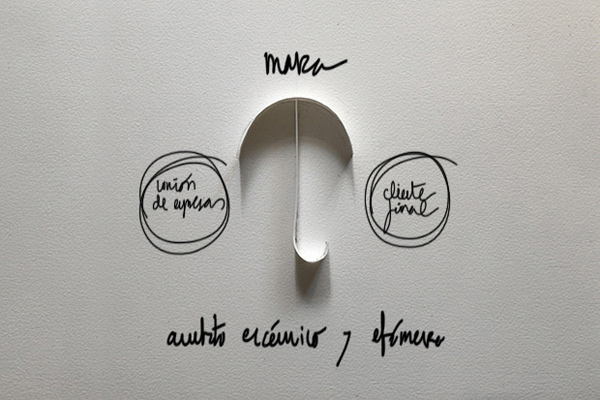 marca
unión
de empresas
cliente
final
ámbito escénico y efímero